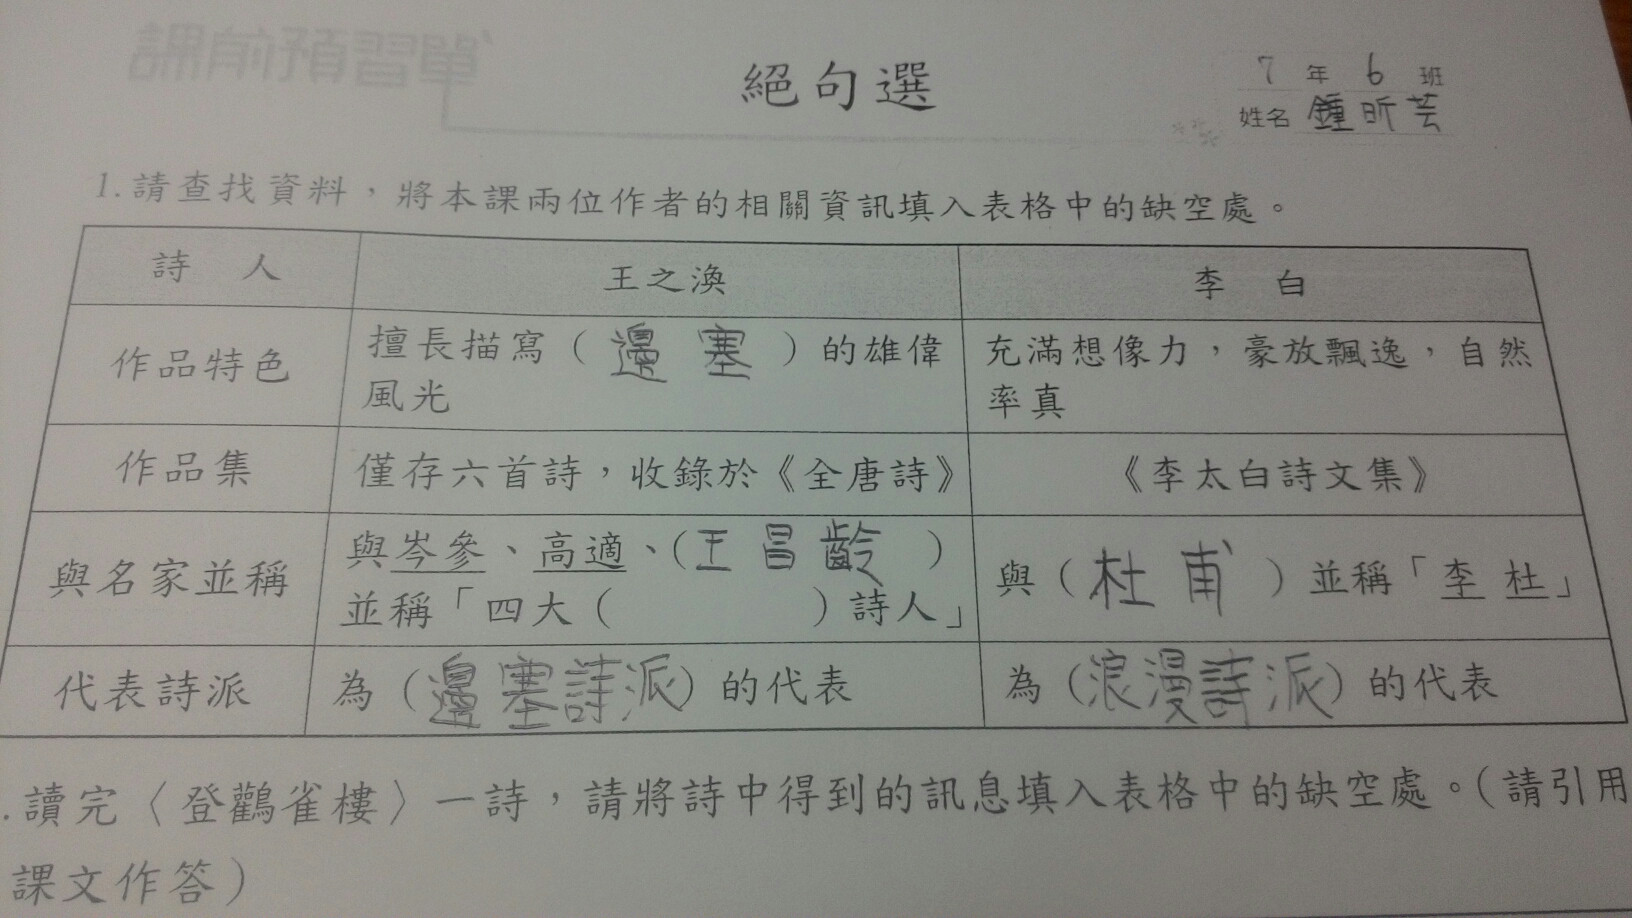 課前預習單
絕句選
7 年 6 班
姓名 鍾昕芸
1.請查找資料，將本課兩位作者的相關資訊填入表格中的缺空處。
詩 人 王之渙 李 白
作品特色 擅長描寫（邊塞）的雄偉風光 充滿想像力，豪放飄逸，自然率真
作品集 僅存六首詩，收錄於《全唐詩》 《李太白詩文集》
與名家並稱 與岑參、高適、（王昌齡）並稱「四大（ ）詩人」 與（杜甫）並稱「李杜」
代表詩派 為（邊塞詩派）的代表 為（浪漫詩派）的代表
.讀完〈登鸛雀樓〉一詩，請將詩中得到的訊息填入表格中的缺空處。（請引用
課文作答）